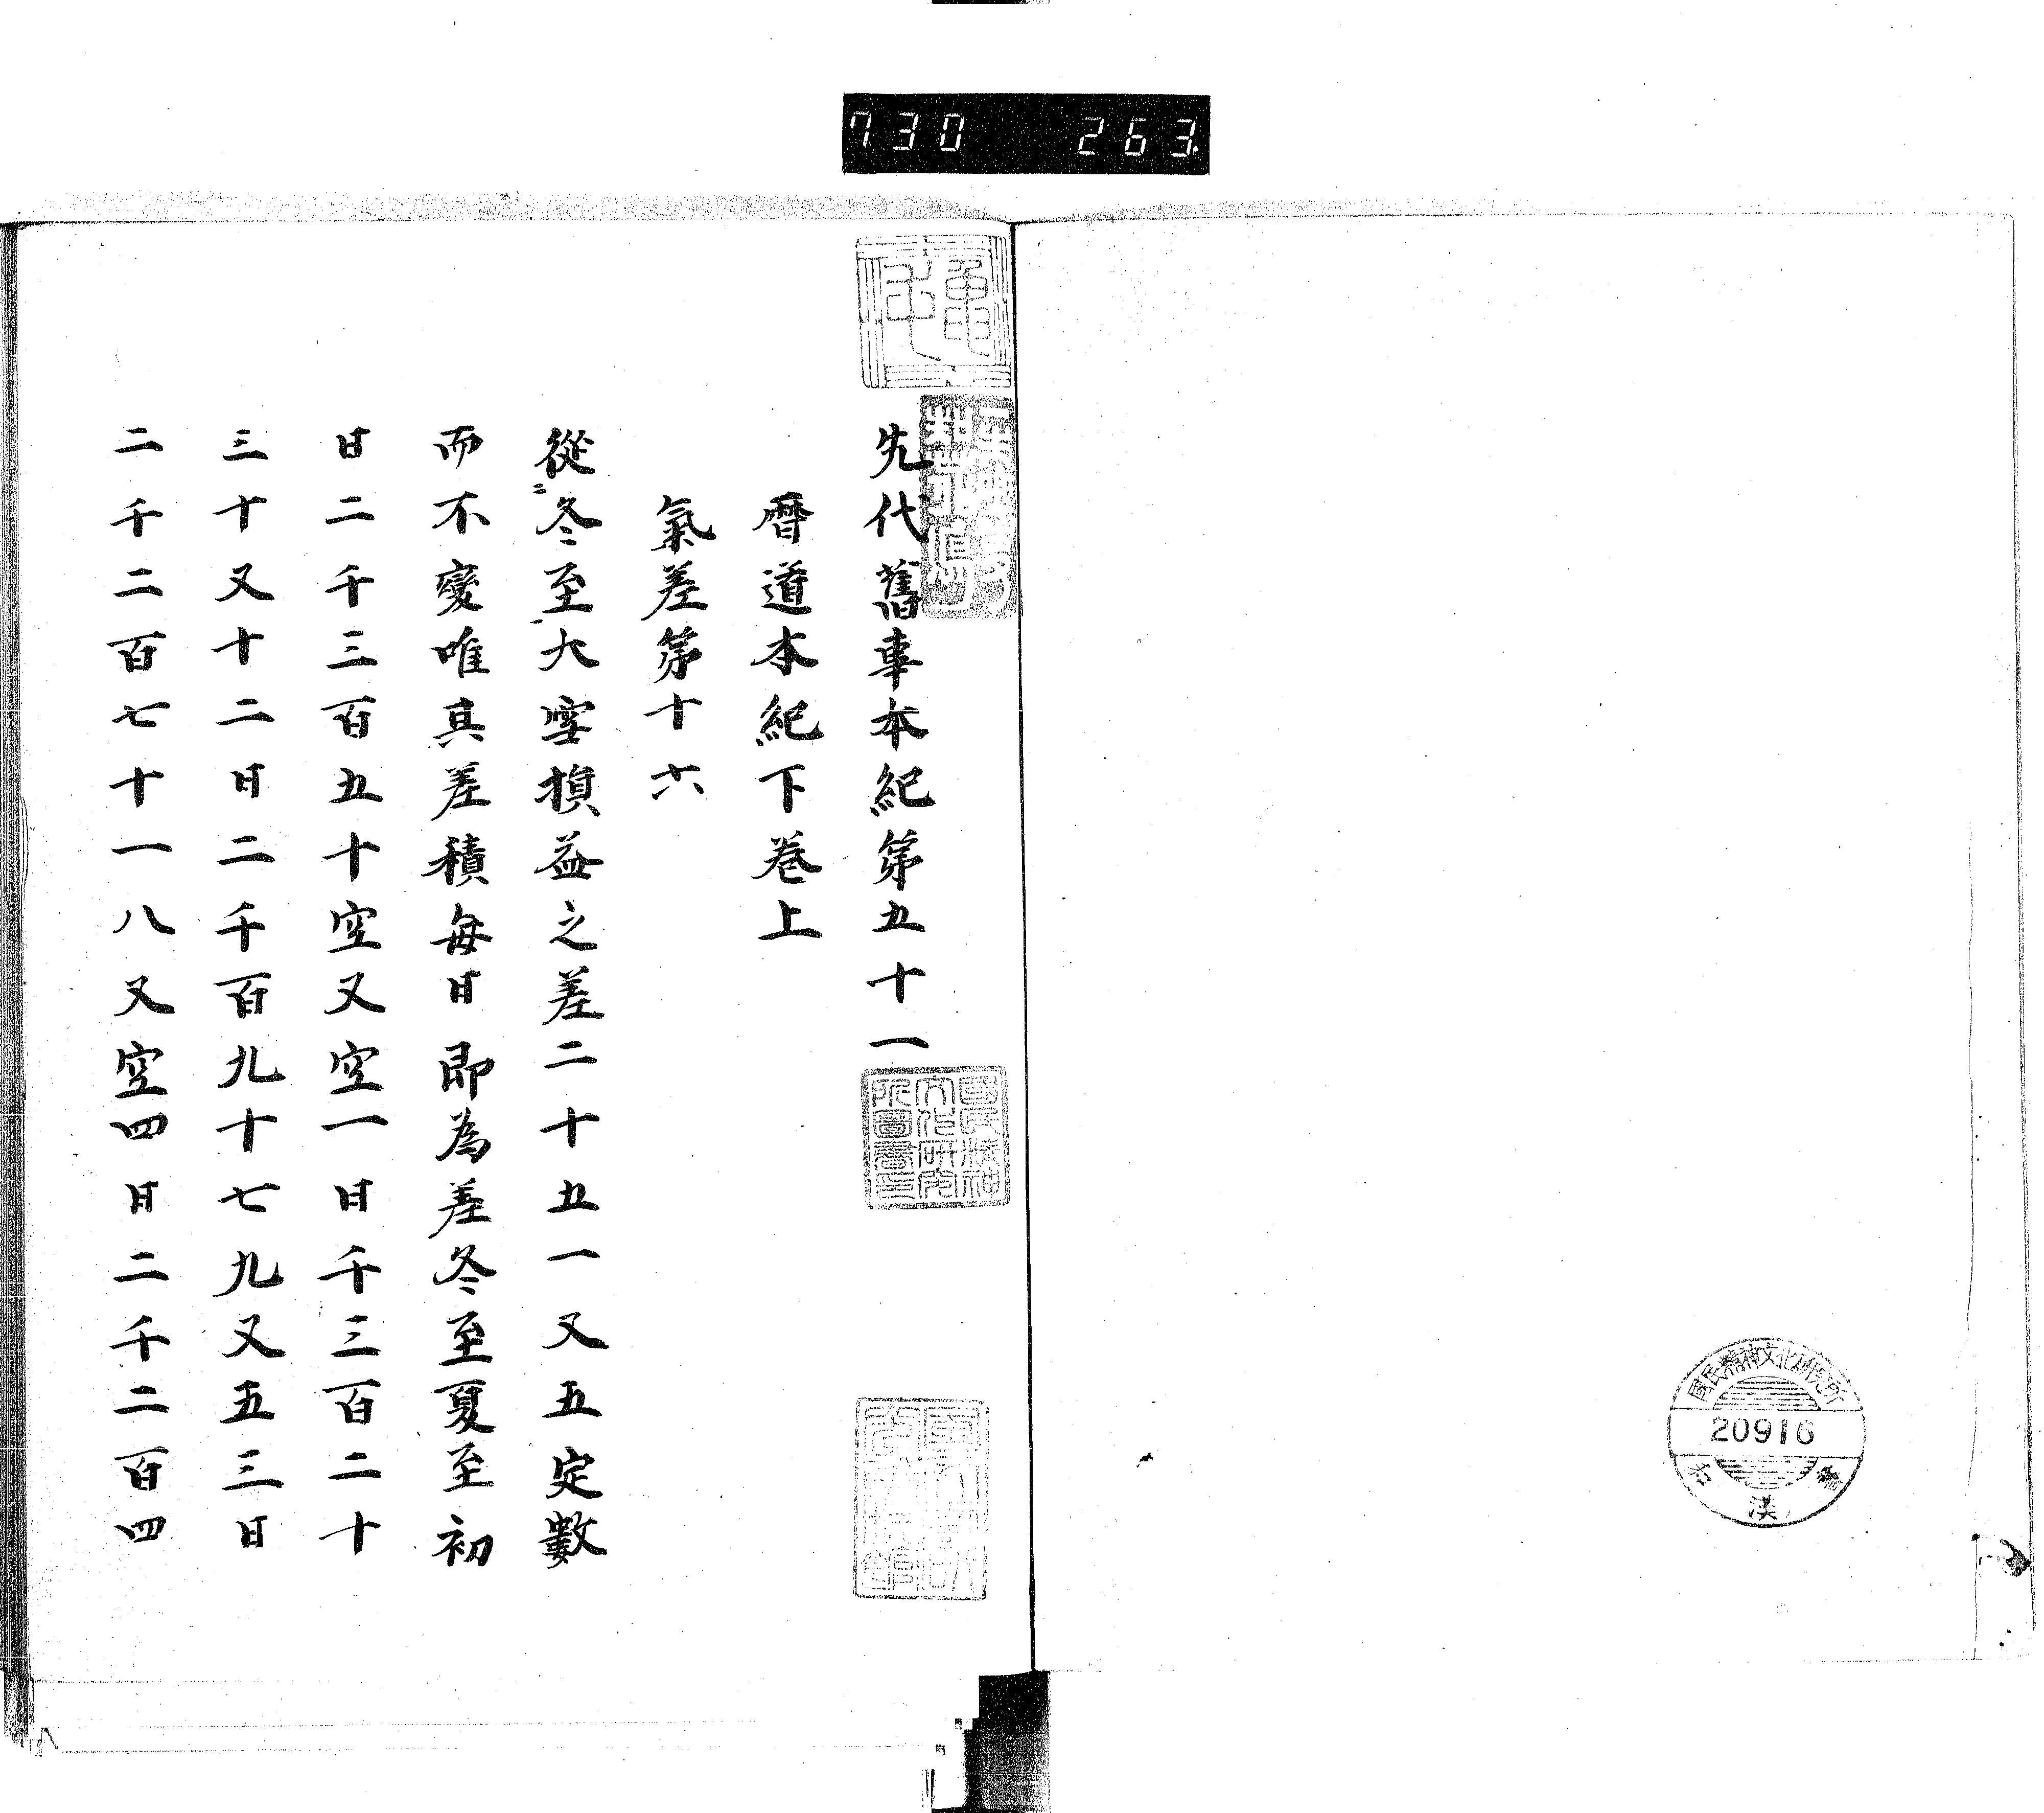 730 263.
國民精神文化研究所
20916
漢
書
先代舊事本紀第五十一
國民精神文化研究所圖書之印
曆道本紀下卷上
氣差第十六
從冬至大雪損益之差二十五一又五定數
而不變唯其差積每日即為差冬至夏至初
日二千三百五十空又空一日千三百二十
三十又十二日二千百九十七九又五三日
二千二百七十一八又空四日二千二百四